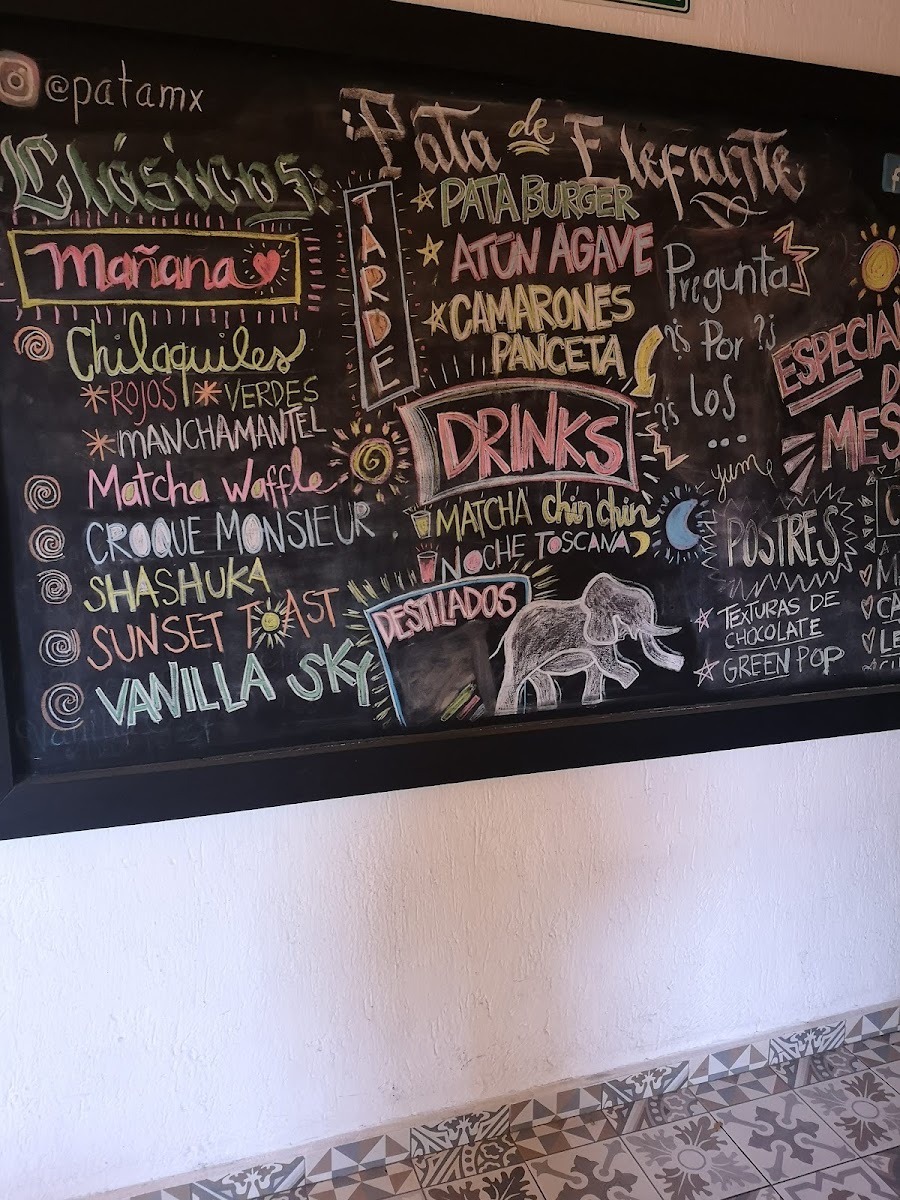 @patamx
Clásicos:
Mañana
Chilaquiles
*ROJOS *VERDES
*MANCHAMANTEL
Matcha Waffle
CROQUE MONSIEUR
SHASHUKA
SUNSET TOAST
VANILLA SKY
¡Pata de Elefante
TARDE
PATA BURGER
ATÚN AGAVE
CAMARONES
PANCETA
DRINKS
MATCHA chin chin
NOCHE TOSCANA
DESTILADOS
Pregunta
Por
los
...
yum
POSTRES
TEXTURAS DE
CHOCOLATE
GREEN POP
ESPECIAL
D
MES